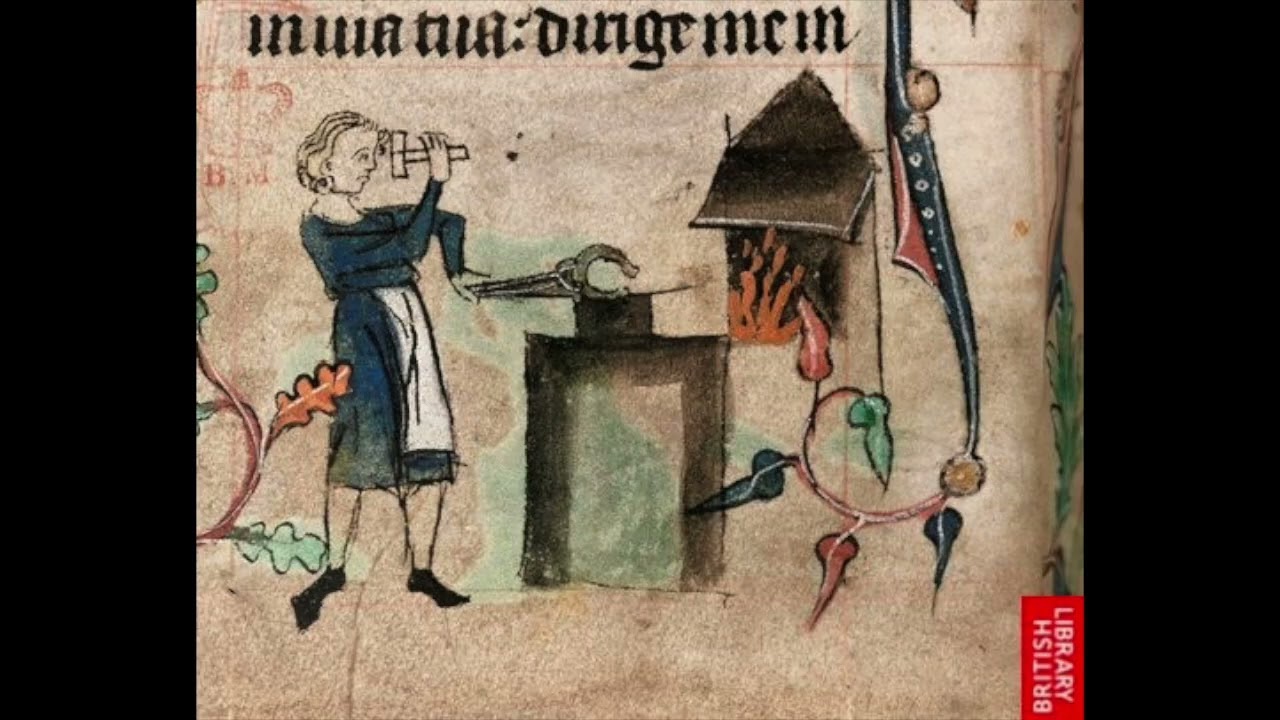 in uia tua: dirige me in
B. M
BRITISH
LIBRARY